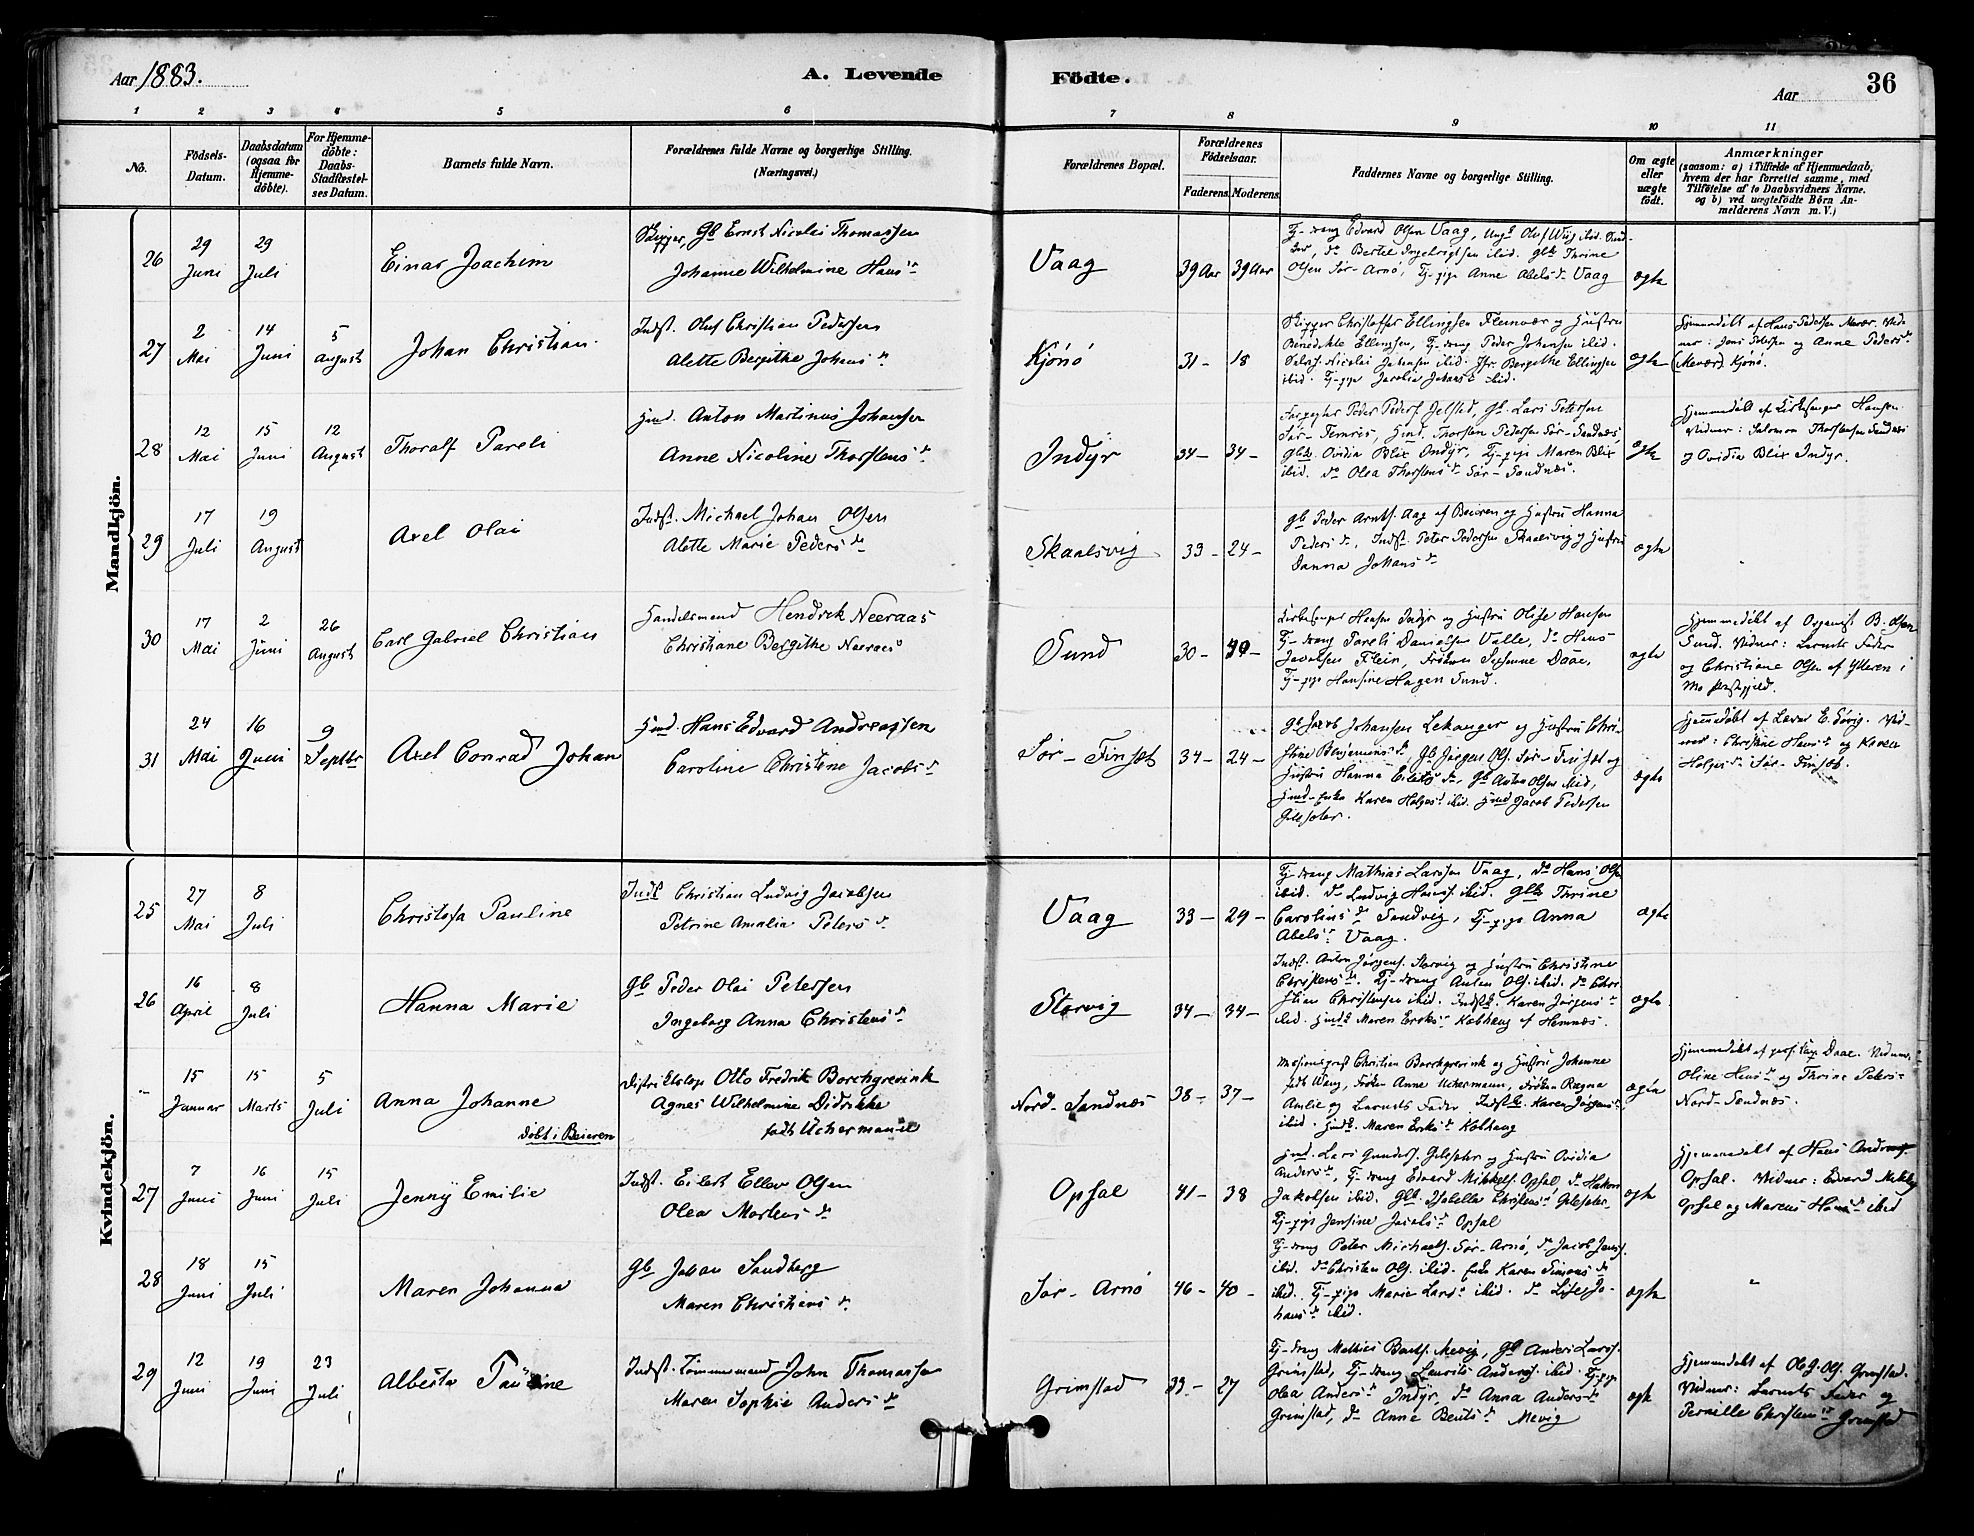 Aar 1883.
A. Levende
Födte.
Aar
36
1 2 3 4 5 6 7 8 9 10 11
No.
Födsels-Datum.
Daabsdatum (ogsaa for Hjemme-döbte).
For Hjemme-döbte: Daabs-Stadfæstel-ses Datum.
Barnets fulde Navn.
Forældrenes fulde Navne og borgerlige Stilling.
(Næringsvei.)
Forældrenes Bopæl.
Forældrenes Födselsaar.
Faderens. Moderens.
Faddernes Navne og borgerlige Stilling.
Om ægte eller uægte födt.
Anmærkninger
(saasom: a) i Tilfælde af Hjemmedaab,
hvem der har forrettet samme, med
Tilföielse af to Daabsvidners Navne.
og b) ved uægtefödte Börn An-
melderens Navn m. V.)
Mandkjön.
26
29 Juni
29 Juli
Einar Joachim
Skipper, Gb Ernst Nicolai Thomassen
Johanne Wilhelmine Hans d.
Vaag
39 Aar
39 Aar
Tj-dreng Edvard Olsen Vaag,
Bertel Ingebrigtsen ibid. Gbk Thrine
Olsen Sør-Arnö, Tj-pige Anne Abels d. Vaag
ægte
27
2 Mai
14 Juni
5 August
Johan Christian
Indst. Oluf Christian Pedersen
Alette Bergithe Johans d.
Kjönö
31 -
18
Skipper Christoffer Ellingsen Fleinvær og Hustru
Benedikte Ellingsen, Tj-dreng Peder Johnsen ibid.
Nicolai Johnsen ibid. Jfr. Bergithe Ellingsen
ibid. Tj-pige ibid.
ægte
Hjemmedöbt af Hans Pedersen Mevær. Vid-
ner: og Anne Peders d.
(Meværd) Kjönö.
28
12 Mai
15 Juni
12 August
Thoralf Pareli
Hmd. Anton Martinus Johansen
Anne Nicoline Thorstens d.
Indyr
34 -
34 -
Forpagter Peder Peders. Jelstad, Gb. Lars Petersen
Hmd. Thorsten Pedersen Sør-Sandnæs,
Gbk. Ovidia Blix Indyr, Tj-pige Maren Blix
ibid. do Olea Thorstens d. Sør-Sandnæs.
ægte
Hjemmedöbt af Kirkesanger Hansen.
Vidner: Salomon Thorstensen Sandnæs
og Ovidia Blix Indyr.
29
17 Juli
19 August
Axel Olai
Indst. Michael Johan Olsen
Alette Marie Peders d.
Skaalsvig
33 -
24 -
Gb Peder Arnts. Aag af Beieren og Hustru Hanna
Peders d., Indst. Peter Pedersen Skaalsvig og Hustru
Danna Johans d.
ægte
30
17 Mai
2 Juni
26 August
Carl Gabriel Christian
Handelsmand Hendrik Neeraas
Christiane Bergithe Neeraas
Sund
30 -
Kirkesanger Hansen Indyr og Hustru Hansen
Tj-dreng Pareli Danielsen Valle, do Hans
Jacobsen Flein, Fröken Susanne Daae,
Tj-pige Hansine Hagen Sund.
ægte
Hjemmedöbt af Organist B. Olsen
Sund. Vidner: Barnets Fader
og Christiane Olsen af Ytteren i
Mo Præstegjeld.
31
24 Mai
16 Juni
9 Septbr
Axel Conrad Johan
Hmd. Hans Edvard Andreassen
Caroline Christine Jacobs d.
Sør-Finset
34 -
24 -
Gb Jacob Johansen Lekanger og Hustru Chri-
stine Benjamins d., Gb Jörgen Ols. Sør-Finset og
Hustru Hanna Eilerts d., Gb Anton Olsen ibid,
Hmd-Enke Karen Helges d. ibid. Hmd Jacob Pedersen
ægte
Hjemmedöbt af Lærer E. Sörig. Vid-
ner: Christine Hans d. og Karen
Helges d. Sør-Finset.
Kvindekjön.
25
27 Mai
8 Juli
Christofa Pauline
Indst Christian Ludvig Jacobsen
Petrine Amalia Peters d.
Vaag
33 -
29 -
Tj-dreng Mathias Larsen Vaag, do Hans Olsen
ibid. do Ludvig Hans. ibid. Gbk Thrine
Carolius d. Sandvig, Tj-pige Anna
Abels d. Vaag.
ægte
26
16 April
8 Juli
Hanna Marie
Gb Peder Olai Petersen
Ingeborg Anna Christens d.
Storvig
34 -
34 -
Indst. Anton Jörgens. Storvig og Hustru Christine
Christens d. Tj-dreng Anton Ols. ibid. do Chri-
stian Christensen ibid. Indstk. Karen Jörgens d.
ibid. Maren Eriks d. Kobhaug af Hemnæs.
ægte
"
15 Januar
15 Marts
5 Juli
Anna Johanne
döbt i Beieren
Distriktslæge Otto Fredrik Borchgrevink
Agnes Wilhelmine Didrikke
födt Uchermann
Nord-Sandnæs
38 -
37 -
Christian Borchgrevink og Hustru Johanne
födt Wang, Fröken Anne Uchermann, Fröken Ragna
og Barnets Fader. Indstk. Karen Jörgens d.
ibid. Maren Eriks d. Kobhaug
ægte
Hjemmedöbt af Daae. Vidner:
Oline Hans d. og Thrine Peters d.
Nord-Sandnæs.
27
7 Juni
16 Juni
15 Juli
Jenny Emilie
Indst. Eilert Elias Olsen
Olea Mortens d.
Opsal
41 -
38
Hmd. Lars og Hustru Ovidia
Anders d., Tj-dreng Edvard Mikkels. Opsal, do Hakon
Jakobsen ibid. Gbk. Isabella Christens d.
Tj-pige Jensine Jacobs d. Opsal
ægte
Hjemmedöbt af Hans
Opsal. Vidner: Edvard
Opsal og Marcus ibid
28
18 Juni
15 Juli
Maren Johanna
Gb Johan Sandberg
Maren Christens d.
Sør-Arnö
46 -
40 -
Tj-dreng Peter Michaels. Sør-Arnö, do Jacob Jens.
ibid. do Christen Ols. ibid. Enke Karen Simons d.
ibid. Tj-pige Marie Lars d. ibid. do Jo-
hans d. ibid.
ægte
"
29
12 Juni
19 Juni
23 Juli
Alberta Pauline
Indst. Tömmermand John Thomassen
Maren Sophie Anders d.
Grimstad
33 -
27
Tj-dreng Mathias Bents. Mevig, Gb Anders Lars.
Grimstad, Tj-dreng Laurits Anders. ibid. Tj-pige
Olea Anders d. Indyr, do Anna Anders d.
Grimstad, do Anne Bents d. Mevig
ægte
Hjemmedöbt af Ols. Grimstad.
Vidner: Barnets Fader og
Pernille Christens d. Grimstad